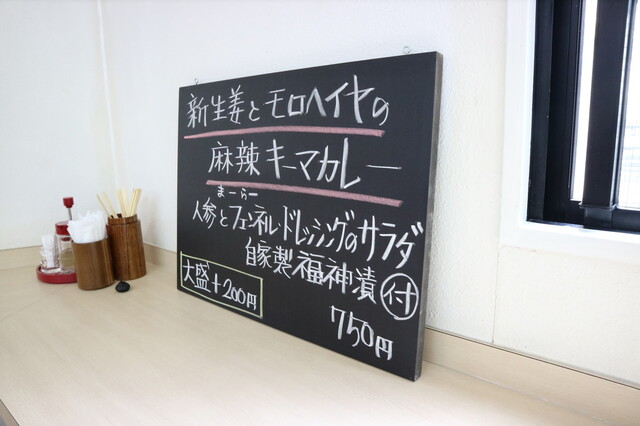 新生姜とモロヘイヤの
麻辣キーマカレー
まーらー
人参とフェネルドレッシングのサラダ
自家製福神漬付
大盛+200円
750円